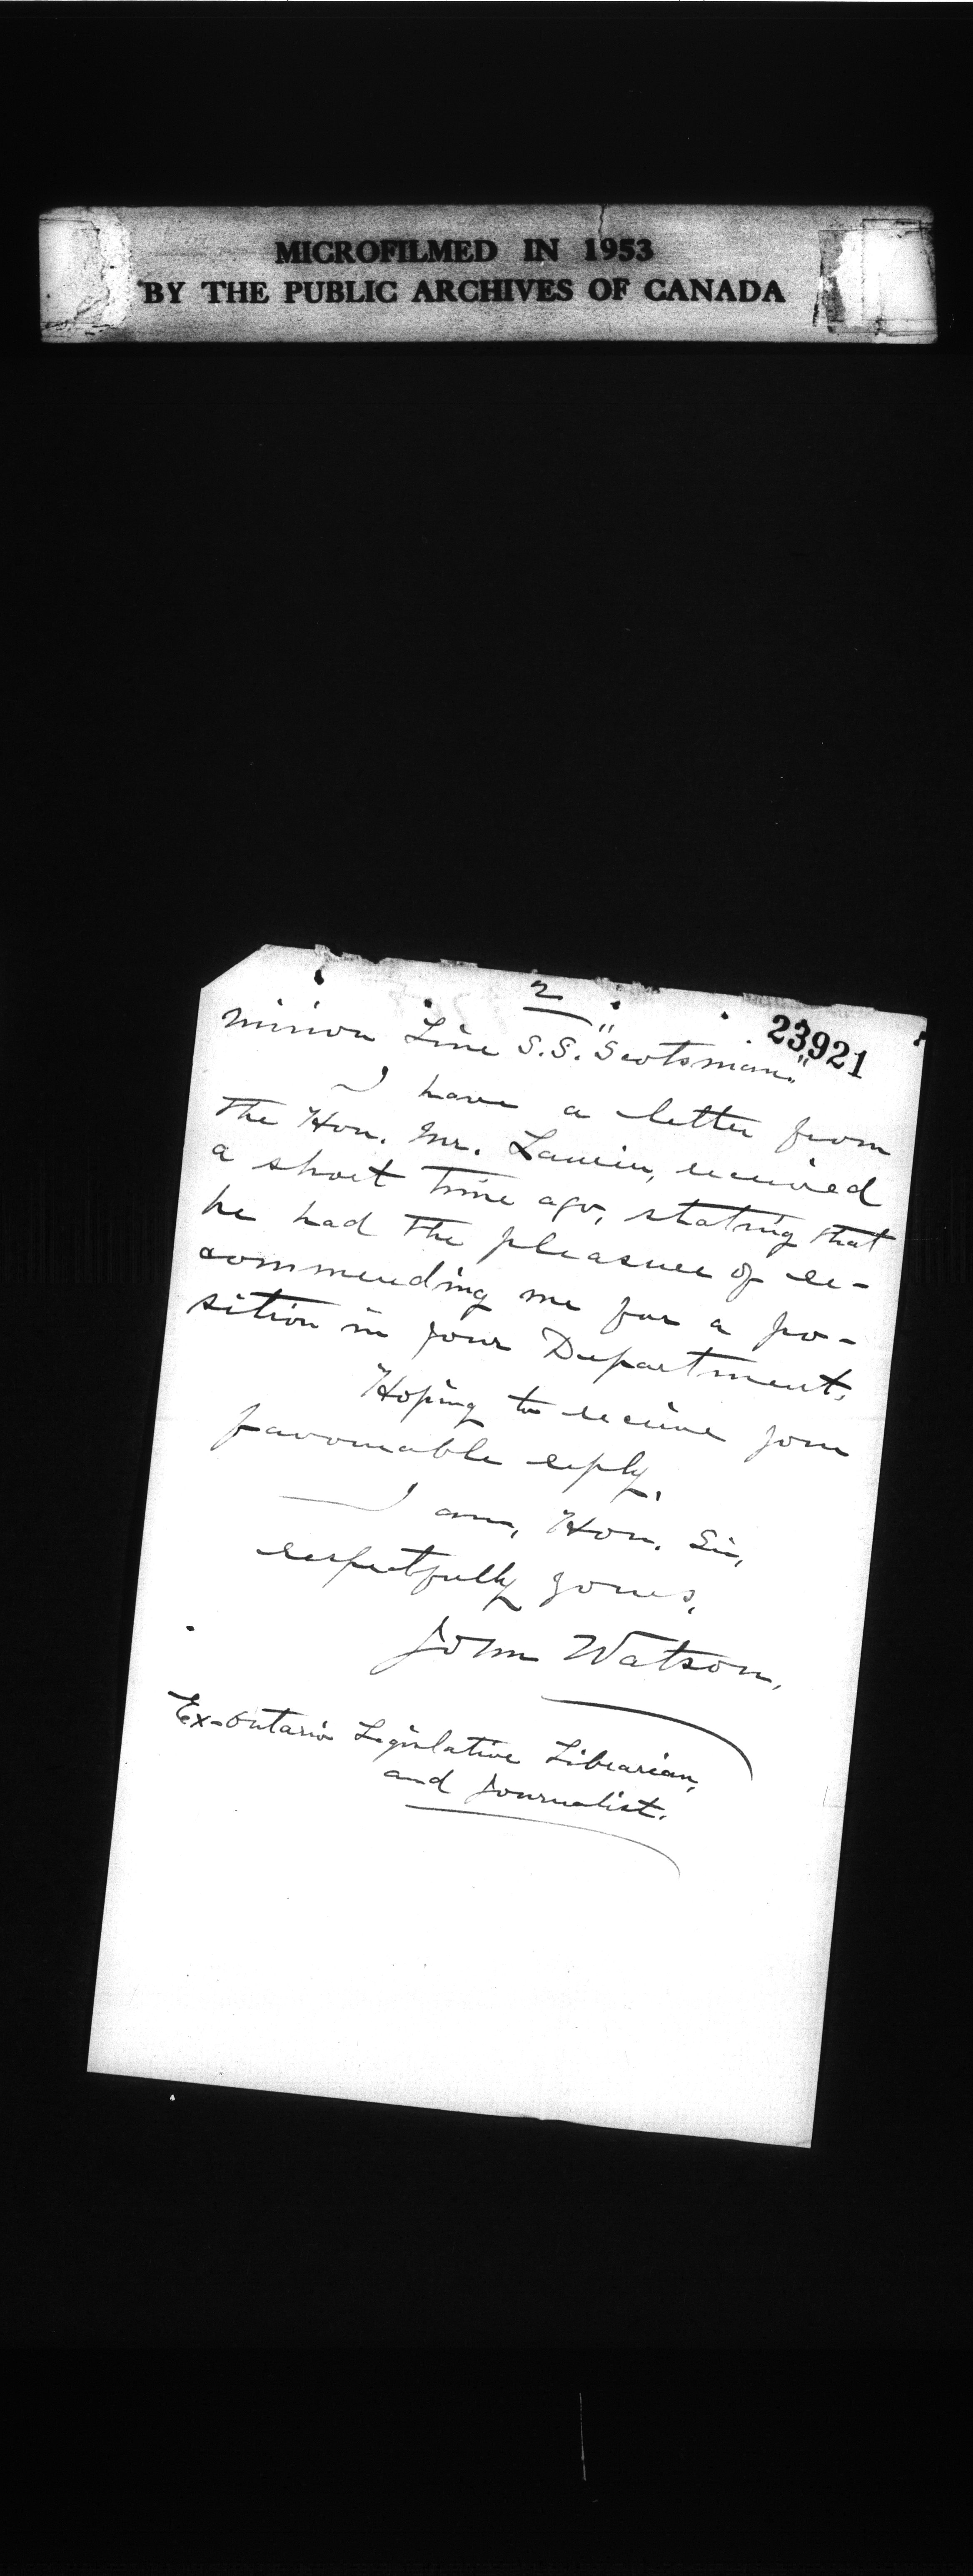 MICROFILMED IN 1953
BY THE PUBLIC ARCHIVES OF CANADA
2
23921
minion Line S.S. "Scotsman."
I have a letter from
the Hon. Mr. Laurier, received
a short time ago, stating that
he had the pleasure of re-
commending me for a po-
sition in your Department.
Hoping to receive your
favourable reply.
I am, Hon. Sir,
respectfully yours,
John Watson,
Ex-Ontario Legislative Librarian,
and Journalist.